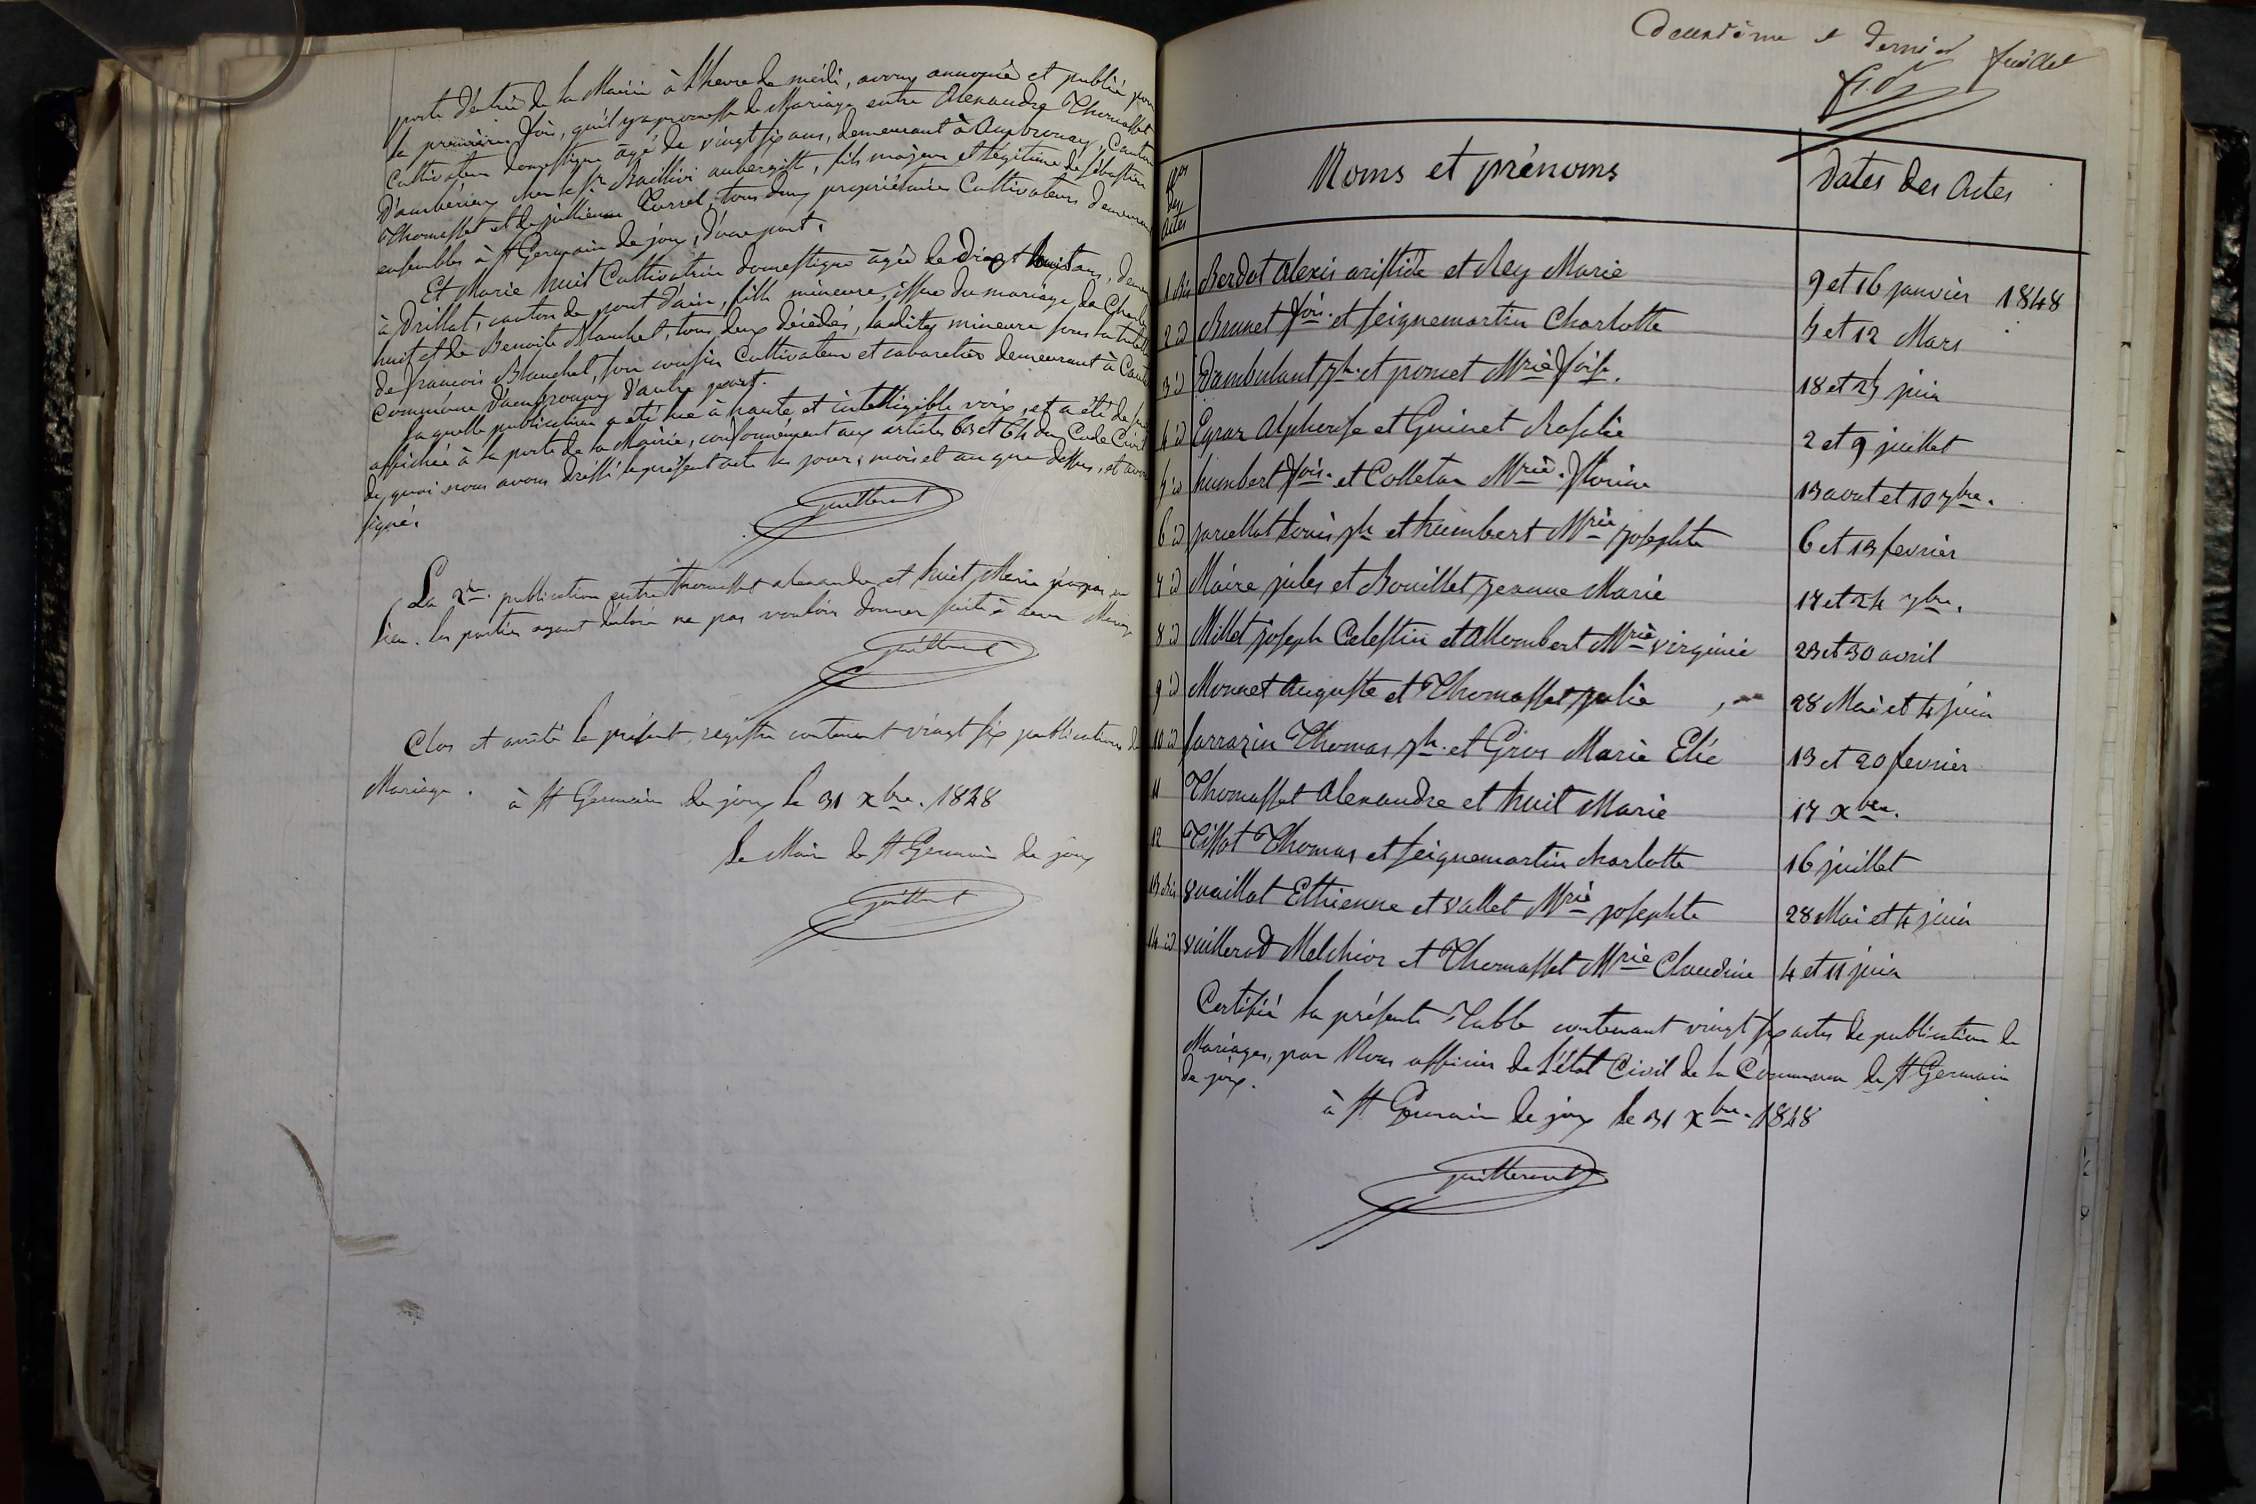 porte d'entrée de la Mairie à l'heure de midi, avons annoncé et publié pour
la première fois, qu'il y a promesse de Mariage entre Alexandre Thomasset
Cultivateur domestique âgé de vingt six ans, demeurant à Ambronay, Canton
D'ambérieux chez le Sr. Baillivi aubergiste, fils majeur et légitime de Sébastien
Thomasset et de jullienne Currel, tous deux propriétaires Cultivateurs demeurant
ensembles à St Germain de joux, d'une part.
Et Marie huit Cultivatrice domestique âgée de dix huit ans,
à Drillat, canton de pont d'ain, fille mineure, issue du mariage de Charles
huit et de Benoite Blanchet, tous deux décédés, ladite mineure sous la tutelle
de françois Blanchet, son cousin Cultivateur et cabaretier demeurant à
Commune d'ambronay d'autre part.
Laquelle publication a été lue à haute et intelligible voix, et a été de suite
affichée à la porte de la Mairie, conformément aux articles 63 et 64 du Code Civil
de quoi nous avons dressé le présent acte les jour, mois et an que dessus, et avons
signé.
Guilleraut
La 2e. publication entre Thomasset alexandre et huit Marie n'a pas eu
lieu. les parties ayant déclaré ne pas vouloir donner suite à leur Mariage
Guilleraut
Clos et arrêté le présent registre contenant vingt six publications de
Mariage.
à St Germain de joux le 31 xbre. 1848
Le Maire de St Germain de joux
Guilleraut
Deuxième et dernier feuillet
Nos des actes
Noms et prénoms
Dates des Actes
1 bis Berdot alexis aristide et Rey Marie 9 et 16 janvier 1848
2 id Brunet fois. et Seignemartin Charlotte 5 et 12 Mars
3 id Dambulant jh. et poncet Mrie foise. 18 et 25 juin
4 id Egraz Alphonse et Guinet Rosalie 2 et 9 juillet
5 id humbert fois. et Colletaz Mrie. florine 13 aout et 10 7bre.
6 id jacellat Louis jh et humbert Mrie josephte 6 et 13 fevrier
7 id Maire jules et Bouillet jeanne Marie 17 et 24 7bre.
8 id Millet joseph Celestin et Allombert Mrie virginie 23 et 30 avril
9 id Monnet Auguste et Thomasset julie 28 Mai et 4 juin
10 id Sarrazin Thomas jh. et Gros Marie Elie 13 et 20 fevrier
11 Thomasset Alexandre et huit Marie 17 xbre.
12 Tissot Thomas et Seignemartin charlotte 16 juillet
13 bis vuaillat Ethienne et vallet Mrie josephte 28 Mai et 4 juin
14 id vuillerod Melchior et Thomasset Mrie Claudine 4 et 11 juin
Certifié la présente Table contenant vingt six actes de publication de
Mariages, par Nous officier de L'état Civil de la Commune de St Germain
de joux.
à St Germain de joux le 31 xbre. 1848
Guilleraut